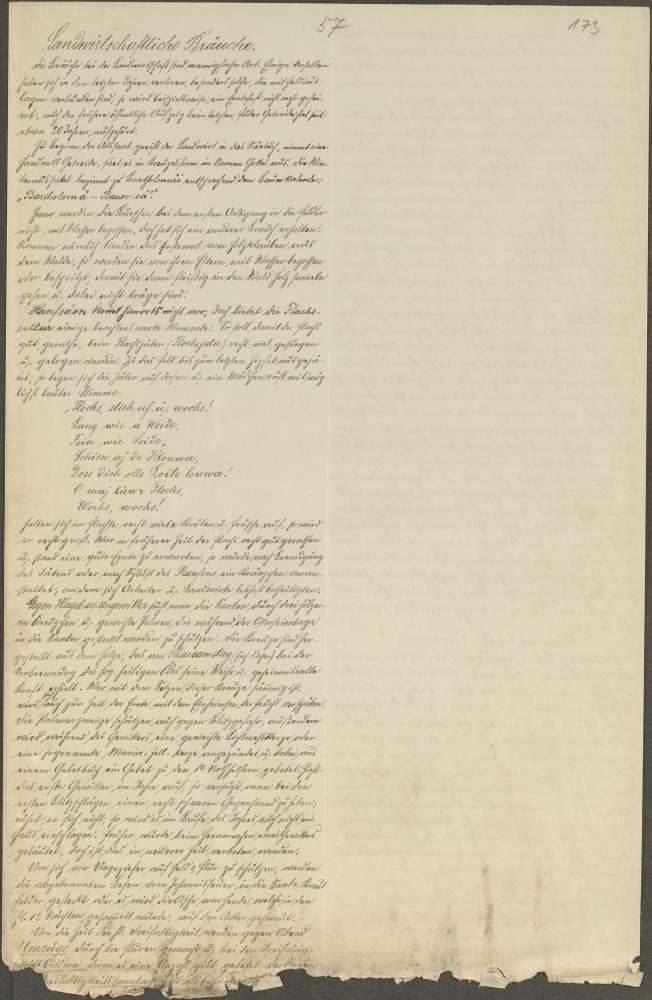 57
173
Landwirtschaftliche Bräuche.
Die Bräuche bei der Landwirtschaft sind mannigfacher Art. Einige derselben
haben sich in den letzten Jahren verloren, besonders solche, die mit
verbunden sind; so wird beispielsweise ein Erntefest nicht mehr gefei-
ert, auch der frühere öffentliche Aufzug beim letzten Fuder Getreide hat seit
etwa 20 Jahren aufgehört.
Zu Beginn der Aussaat greift der Landwirt in das Säetuch, nimmt eine
Handvoll Getreide, säet es in Kreuzesform im Namen Gottes aus. Die Win-
teraussaat beginnt zu Bartholomäi entsprechend dem Bauernkalender:
„Bartholomä – Bauer sä!"
Zwar werden die Burschen bei dem ersten Ausgang in die Felder
nicht mit Wasser begossen, doch hat sich ein anderer Brauch erhalten.
Kommen nämlich Kinder das erstemal vom Holzklauben aus
dem Walde, so werden sie von ihren Eltern mit Wasser begossen
oder bespritzt, damit sie dann fleißig in den Wald Holz sammeln
gehen u. dabei nicht träge sind.
Hanfsäen kommt hierorts nicht vor, doch bietet die Flachs-
cultur einige beachtenswerte Momente. So soll, damit der Flachs
gut gerathe, beim Flachssäen (Flockssäta) recht viel gesungen
u. gelogen werden. Ist das Feld bis zum letzten Zipfel ausgesä-
et, so legen sich die Jäter auf diesen u. ein Mädchen ruft mit mög-
lichst lauter Stimme:
„Flocks, stieh uf u. wochs!
Lang wie a Weide,
Fein wie Seide,
Schien aj de Klouwa,
Doss dich olle Leite louwa!
O maj liewr Flocks,
Wochs, wochs!
Halten sich im Flachse recht viele Kröten u. Frösche auf, so wird
er recht groß. War in früherer Zeit der Flachs recht gut gerathen
u. stand eine gute Ernte zu erwarten, so wurde nach Beendigung
des Jätens oder nach Schluß des Raufens ein Kränzchen veran-
staltet, an dem sich Arbeiter u. Landwirte lebhaft betheiligten.
Gegen Hagel u. Ungewitter sucht man die Saaten durch drei hölzer-
ne Kreuzchen u. geweihte Palmen, die während der Osterfeiertage
in die Saaten gesteckt werden zu schützen. Die Kreuze sind her-
gestellt aus dem Holze, das am Charsamstag bei der
Verbrennung des sog. heiligen Oels seine Weihe u. geheimnisvolle
Kraft erhält. Wer mit dem Setzen dieser Kreuze säumig ist,
wird auch zur Zeit der Ernte mit dem Einheimsen der Frucht verspäten.
Die Palmenzweige schützen auch gegen Blitzgefahr, außerdem
wird während des Gewitters eine geweihte Lichtmeßkerze oder
eine sogenannte Maria-Zell-Kerze angezündet u. dabei aus
einem Gebetbuch ein Gebet zu den 14 Nothhelfern gebetet. Tritt
das erste Gewitter im Jahre auf, so versucht man bei den
ersten Blitzschlägen einen recht schweren Gegenstand zu heben;
rührt er sich nicht, so wird es im Laufe des Jahres auch nicht ins
Haus einschlagen. Früher wurde beim Herannahen eines Gewitters
geläutet, doch ist dies in neuerer Zeit verboten worden.
Um sich vor Ungeziefer auf Feld u. Flur zu schützen, werden
die abgebrannten Besen vom Johannisfeuer in die Saat- Kraut
felder gesteckt, oder es wird die Asche vom Herde, welche in den
12 Nächten gesammelt wurde, auf den Acker gestreut. –
Um die Zeit der hl. Dreifaltigkeit werden gegen Abend
Umzüge durch die Fluren gemacht u. bei den
gibt, gebetet.